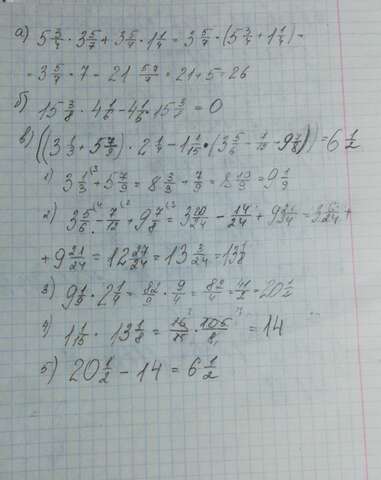 а) 5 3/4 · 3 5/7 + 3 5/7 · 1 1/4 = 3 5/7 · (5 3/4 + 1 1/4) =
= 3 5/7 · 7 = 21 5·7/7 = 21 + 5 = 26
б) 15 3/8 · 4 1/6 − 4 1/6 · 15 3/8 = 0
в) ((3 1/3 + 5 7/9) · 2 1/4 − 1 1/15 · (3 5/6 − 7/12 + 9 7/8)) = 6 1/2
1) 3 1/3 + 5 7/9 = 8 3/9 + 7/9 = 8 10/9 = 9 1/9
2) 3 5/6 − 7/12 + 9 7/8 = 3 20/24 − 14/24 + 9 21/24 = 3 6/24 +
+ 9 21/24 = 12 27/24 = 13 3/24 = 13 1/8
3) 9 1/9 · 2 1/4 = 82/9 · 9/4 = 82/4 = 41/2 = 20 1/2
4) 1 1/15 · 13 1/8 = 16/15 · 105/8 = 14
5) 20 1/2 − 14 = 6 1/2